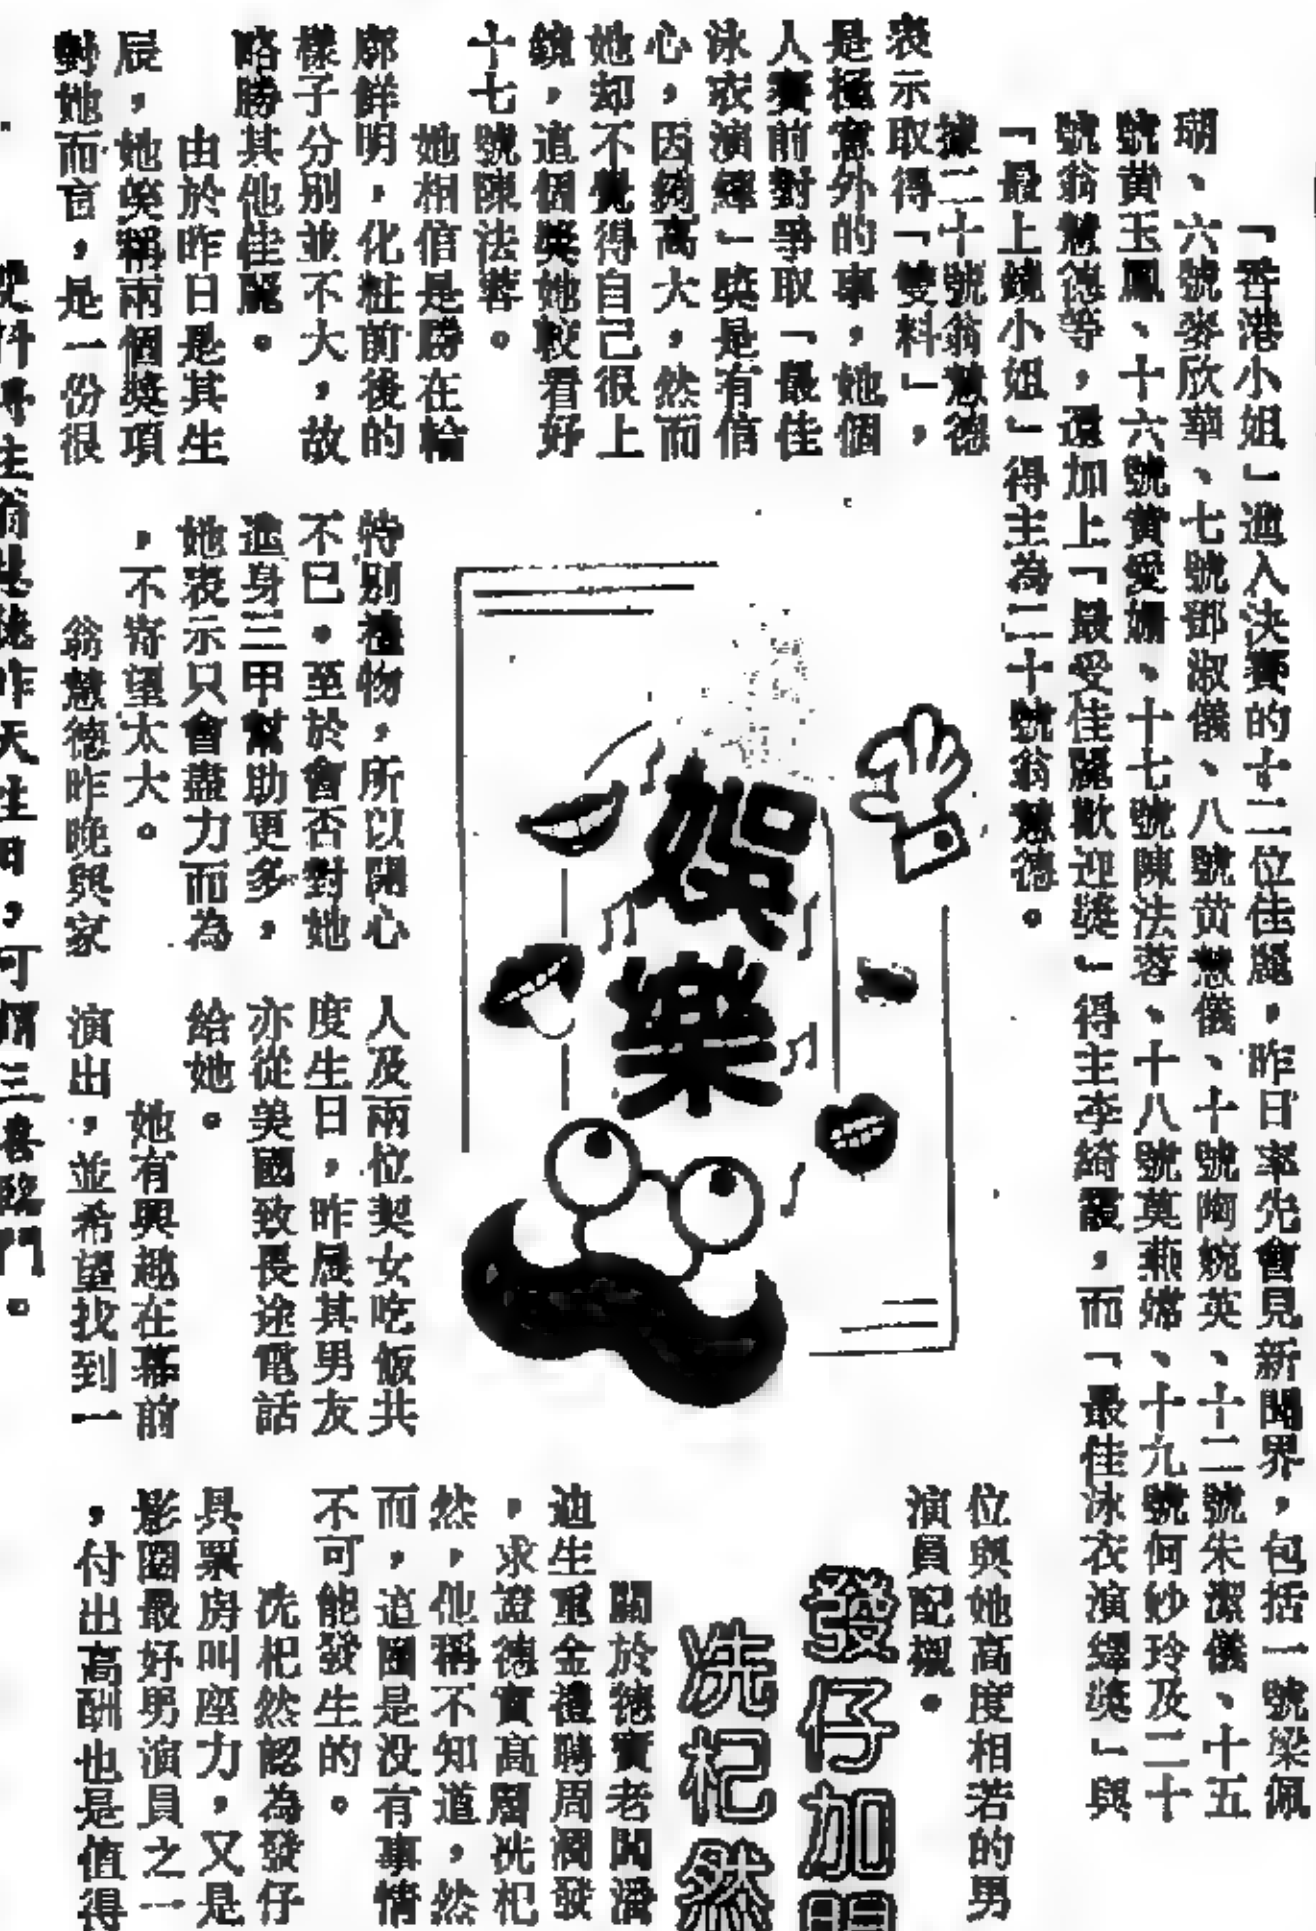 「香港小姐」進入決賽的十二位佳麗，昨日率先會見新聞界，包括一號梁珮
瑚、六號麥欣華、七號鄧淑儀、八號黃慧儀、十號陶婉英、十二號朱潔儀、十五
號黃玉鳳、十六號黃愛媚、十七號陳法蓉、十八號莫燕嫦、十九號何妙玲及二十
號翁慧德等，還加上「最受佳麗歡迎獎」得主李綺霞，而「最佳泳衣演繹獎」與
「最上鏡小姐」得主為二十號翁慧德。
據二十號翁慧德
表示取得「雙料」，
是極意外的事，她個
人賽前對爭取「最佳
泳衣演繹」獎是有信
心，因夠高大，然而
她却不覺得自己很上
鏡，這個獎她較看好
十七號陳法蓉。
她相信是勝在輪
廓鮮明，化粧前後的
樣子分別並不大，故
略勝其他佳麗。
由於昨日是其生
辰，她笑稱兩個獎項
對她而言，是一份很
特別禮物，所以開心
不已。至於會否對她
進身三甲幫助更多，
她表示只會盡力而為
，不寄望太大。
翁慧德昨晚與家
人及兩位契女吃飯共
度生日，昨晨其男友
亦從美國致長途電話
給她。
她有興趣在幕前
演出，並希望找到一
位與她高度相若的男
演員配襯。
娛樂
發仔加盟
冼杞然
關於德寶老闆潘
迪生重金禮聘周潤發
，求證德寶高層冼杞
然，他稱不知道，然
而，這圈是沒有事情
不可能發生的。
冼杞然認為發仔
具票房叫座力，又是
影圈最好男演員之一
，付出高酬也是值得
昨天生日，可謂三喜臨門。